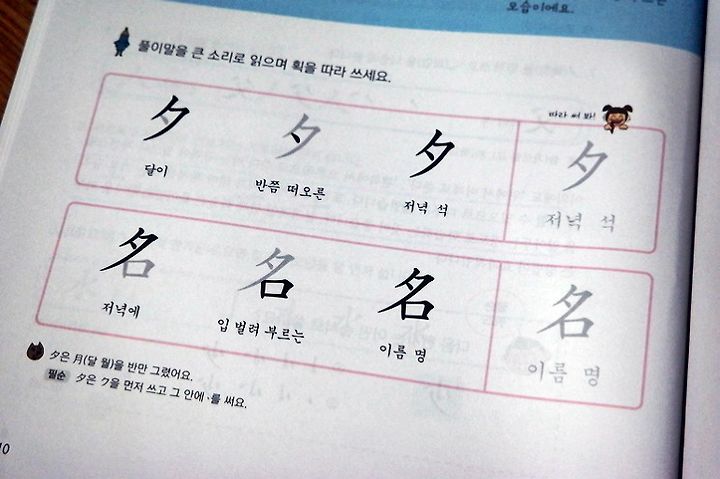 모습이에요.
풀이말을 큰 소리로 읽으며 획을 따라 쓰세요.
따라 써 봐!
夕 夕 夕 夕
달이 반쯤 떠오른 저녁 석 저녁 석
名 名 名 名
저녁에 입 벌려 부르는 이름 명 이름 명
夕은 月(달 월)을 반만 그렸어요.
필순 夕은 ク을 먼저 쓰고 그 안에 丶를 써요.
10